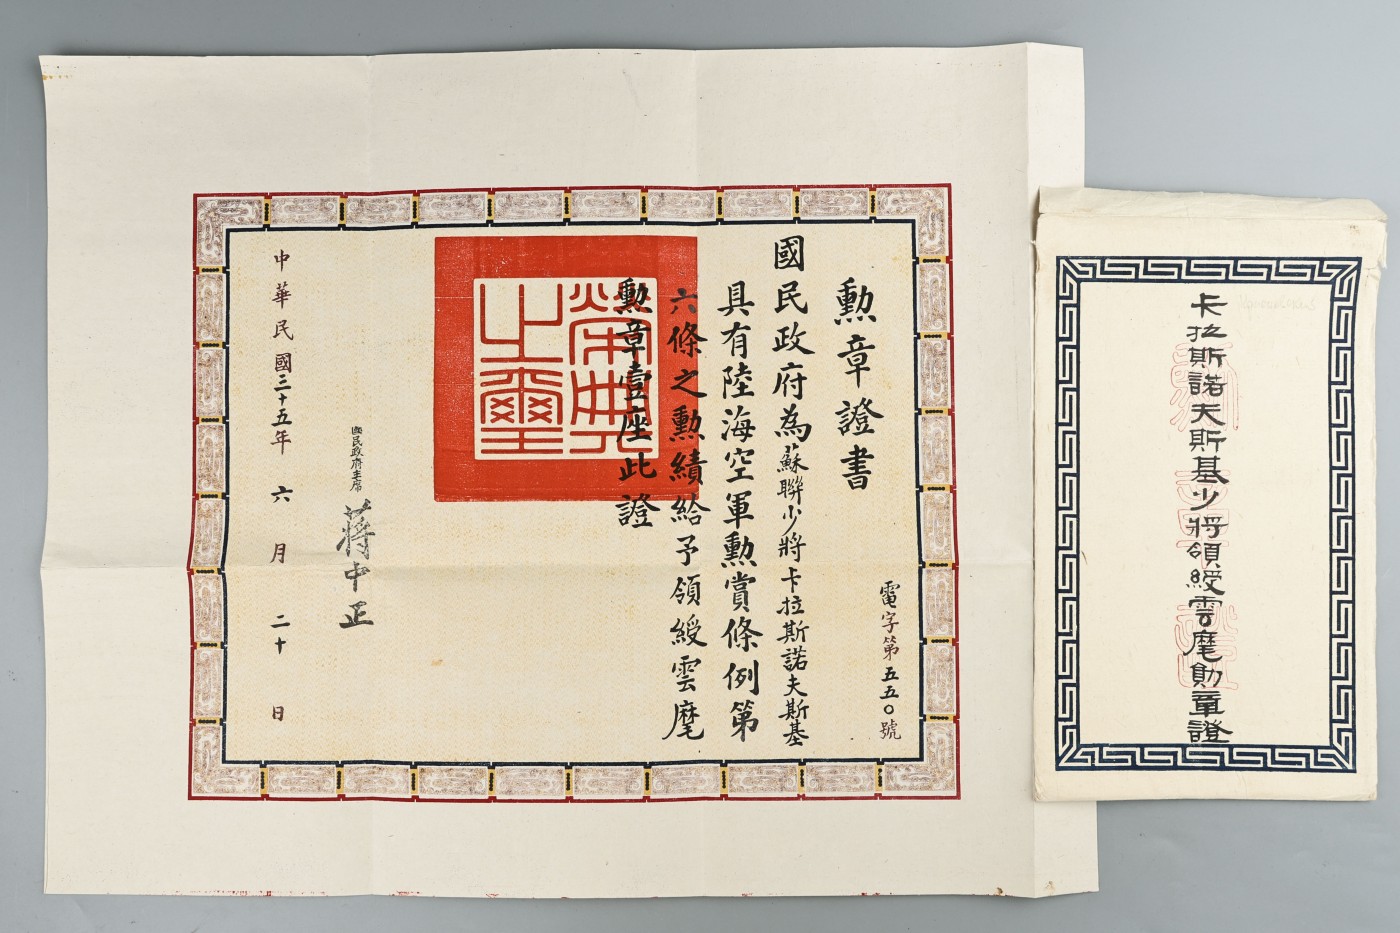 勲章證書
國民政府為蘇聯少將卡拉斯諾夫斯基
具有陸海空軍勲賞條例第
六條之勲績給予領綬雲麾
勲章壹座此證
電字第五五〇號
榮典之璽
國民政府主席
蔣中正
中華民國三十五年六月二十日
卡拉斯諾夫斯基少將領綬雲麾勛章證